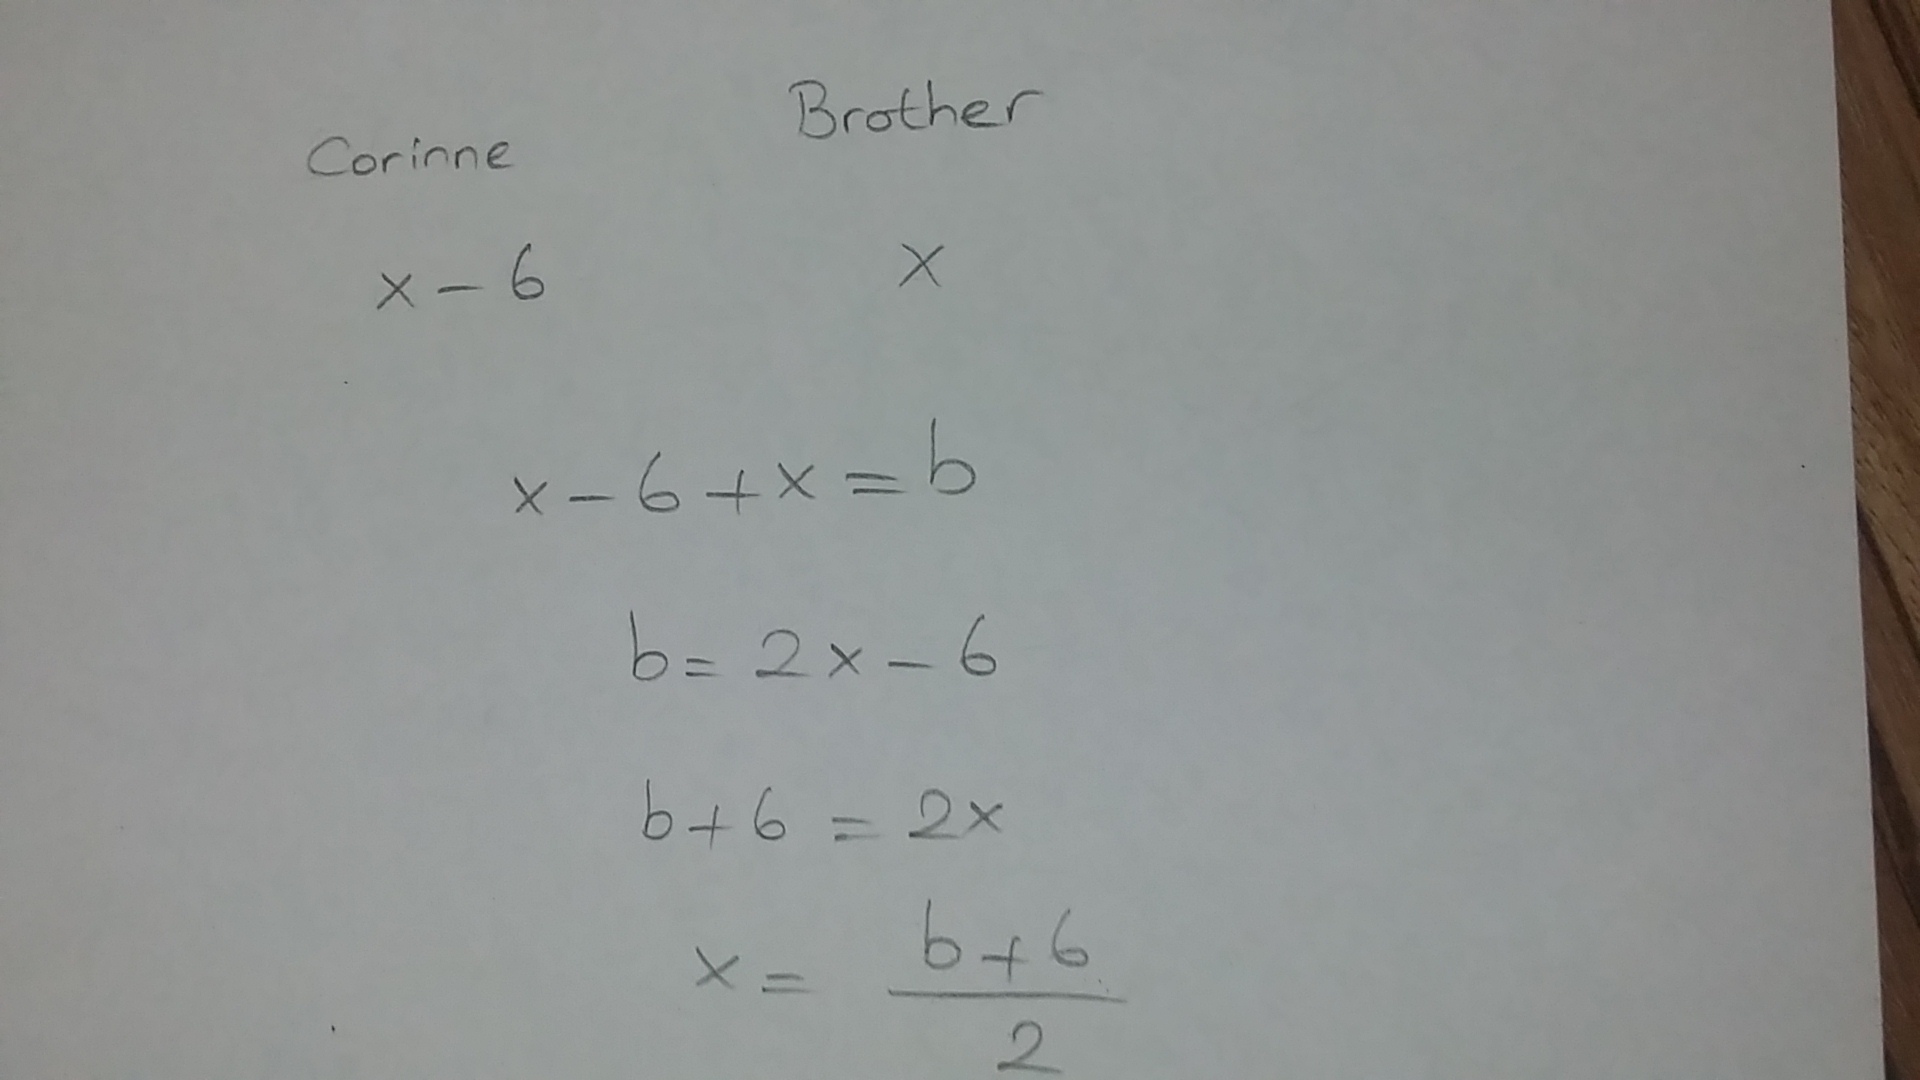 Corinne Brother
x - 6 x
x - 6 + x = b
b = 2x - 6
b + 6 = 2x
x = b + 6 / 2